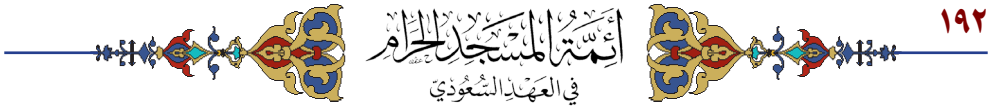 ١٩٢
أَئِمَّةُ المَسْجِدِ الحَرَامِ
فِي العَهْدِ السُّعُودِيِّ